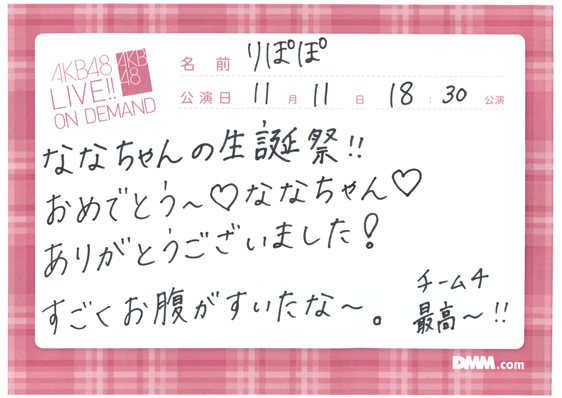 AKB48
LIVE!!
ON DEMAND
AKB
48
名前 りぽぽ
公演日 11月11日 18:30公演
ななちゃんの生誕祭!!
おめでとう~♡ななちゃん♡
ありがとうございました!
すごくお腹がすいたな~。
チーム4
最高~!!
DMM.com